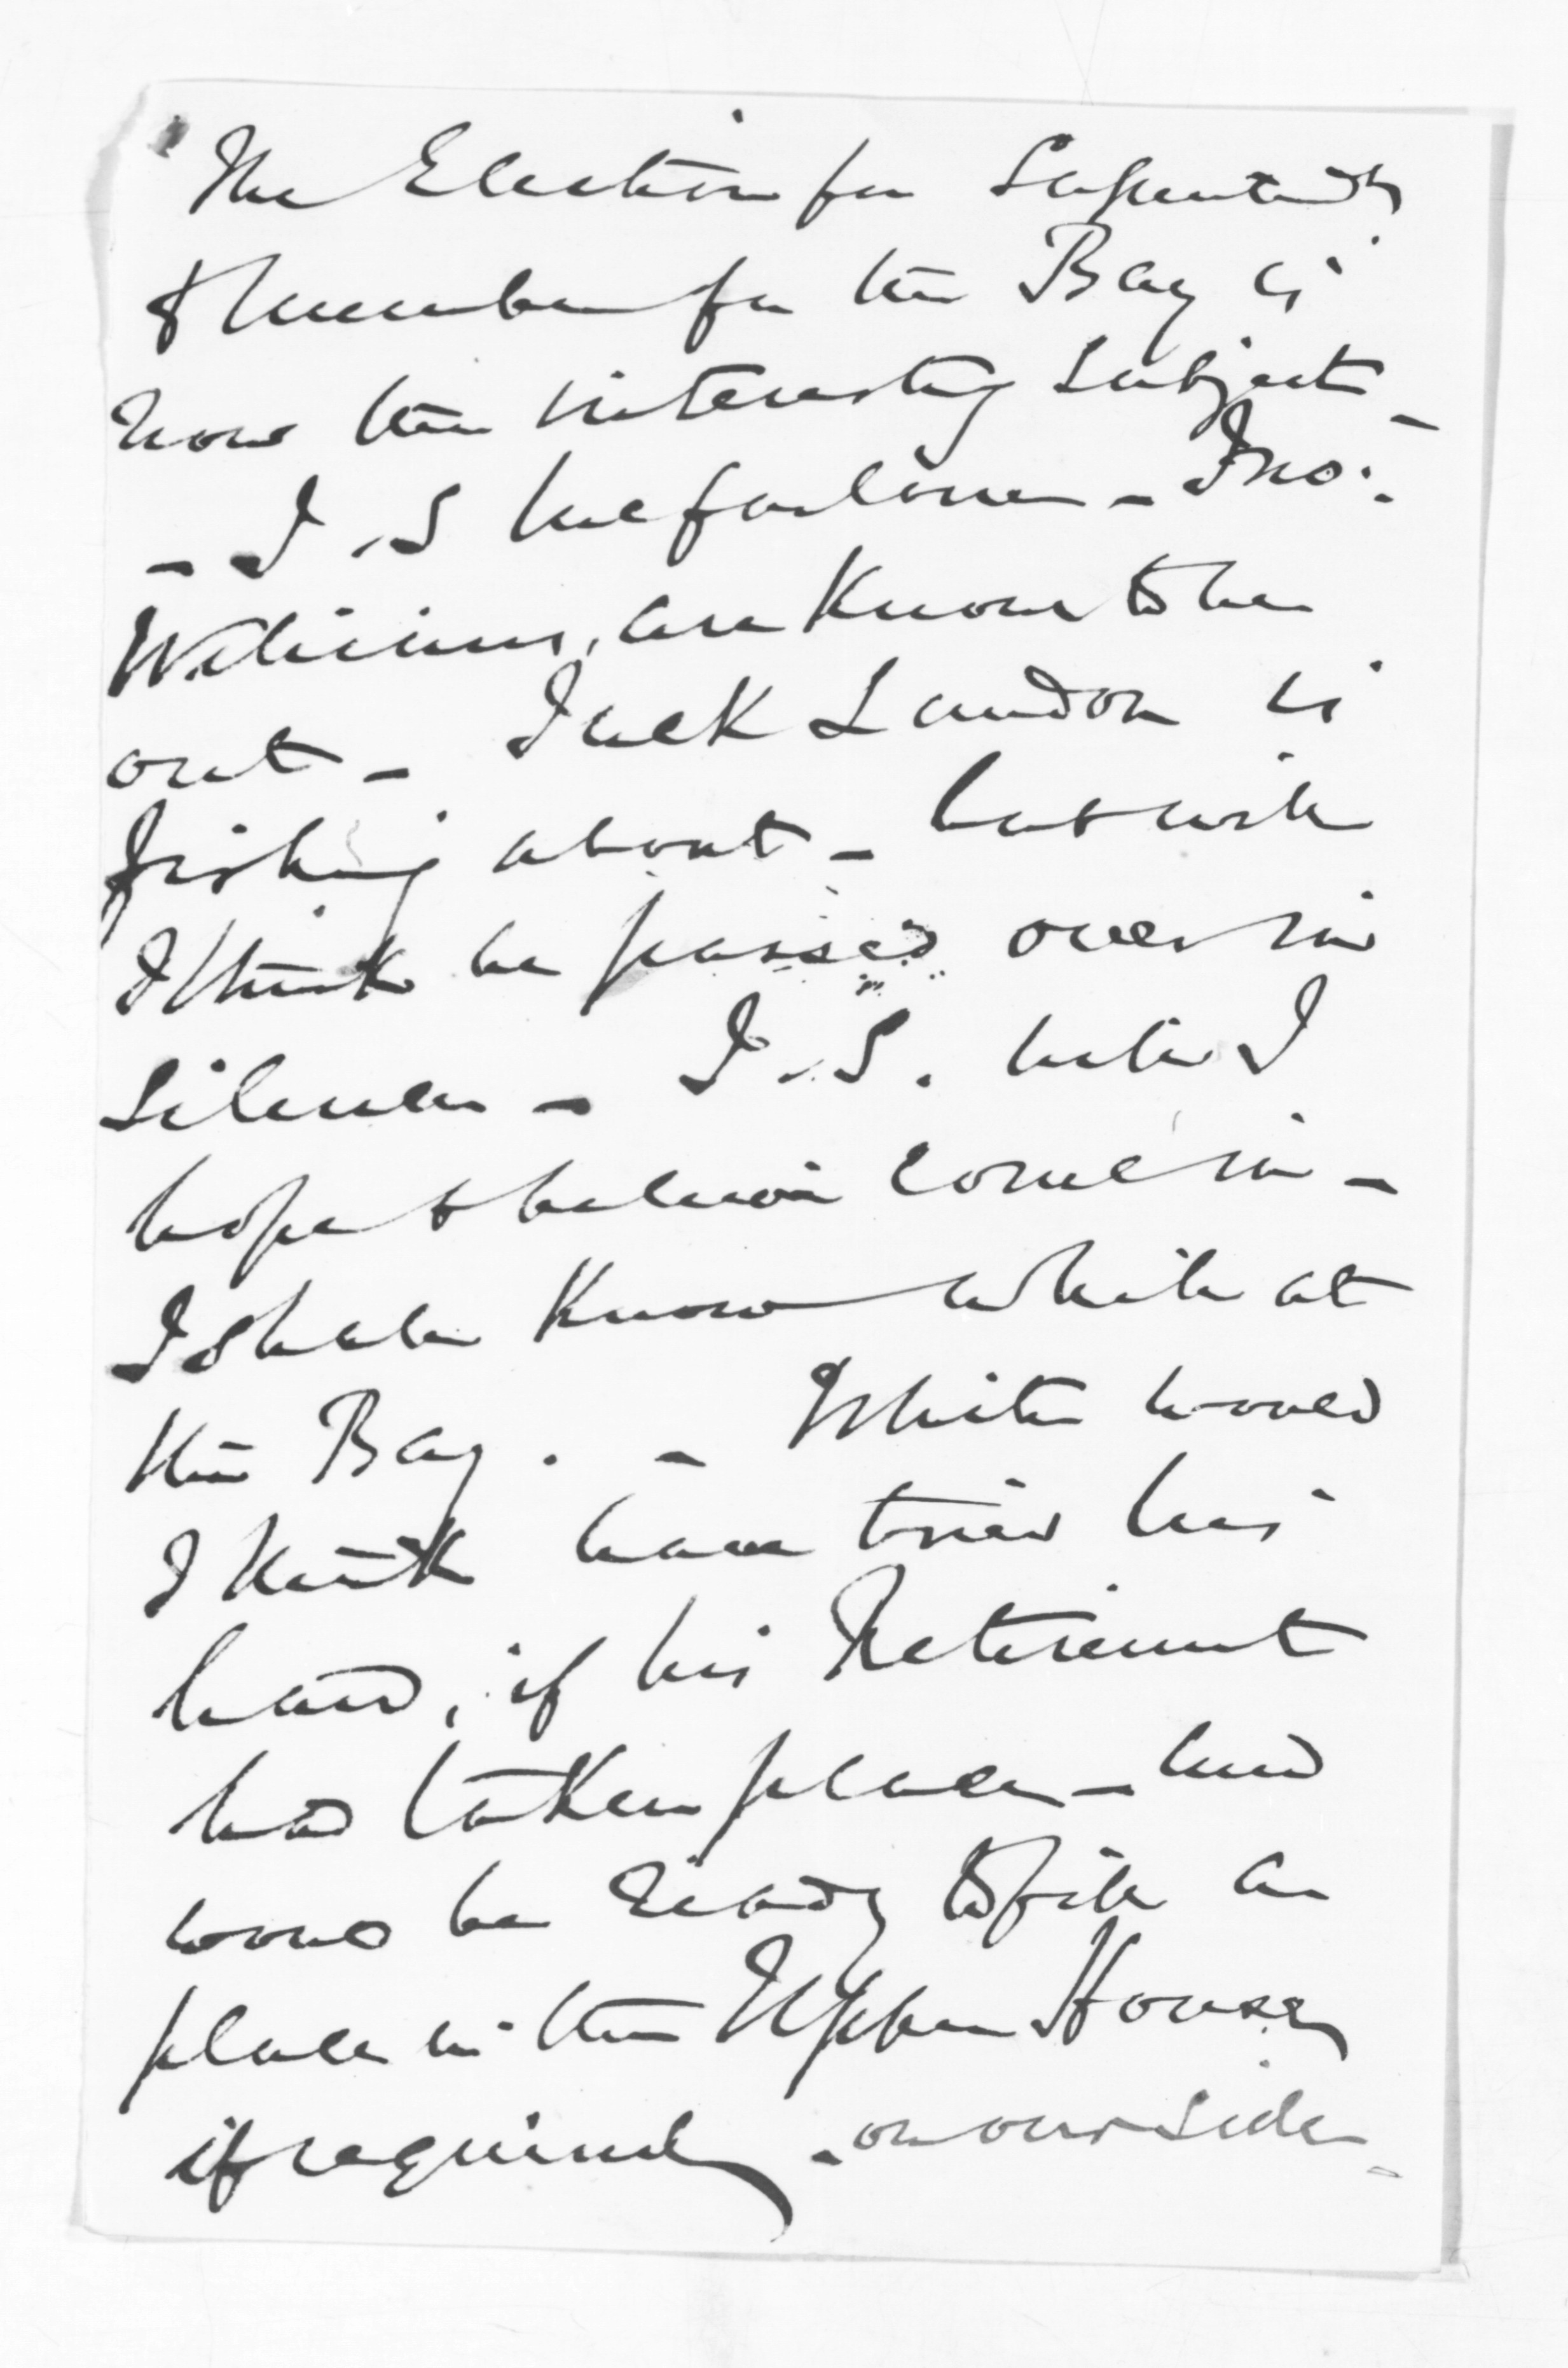 The Election for Superintdt
& Member for the Bay is
now the interesting subject _
_ J. S Macfarlane _ Jno:
Williams, are known to be
out _ Jack Lundon is
fishing about _ but will
I think be passed over in
silence _ J. S. will I
hope & believe come in _
I shall know while at
the Bay. _ White would
I think have tried his
hand, if his Retirement
had taken place _ and
would be ready to fill a
place in the Upper House,
if required, _ on our side _